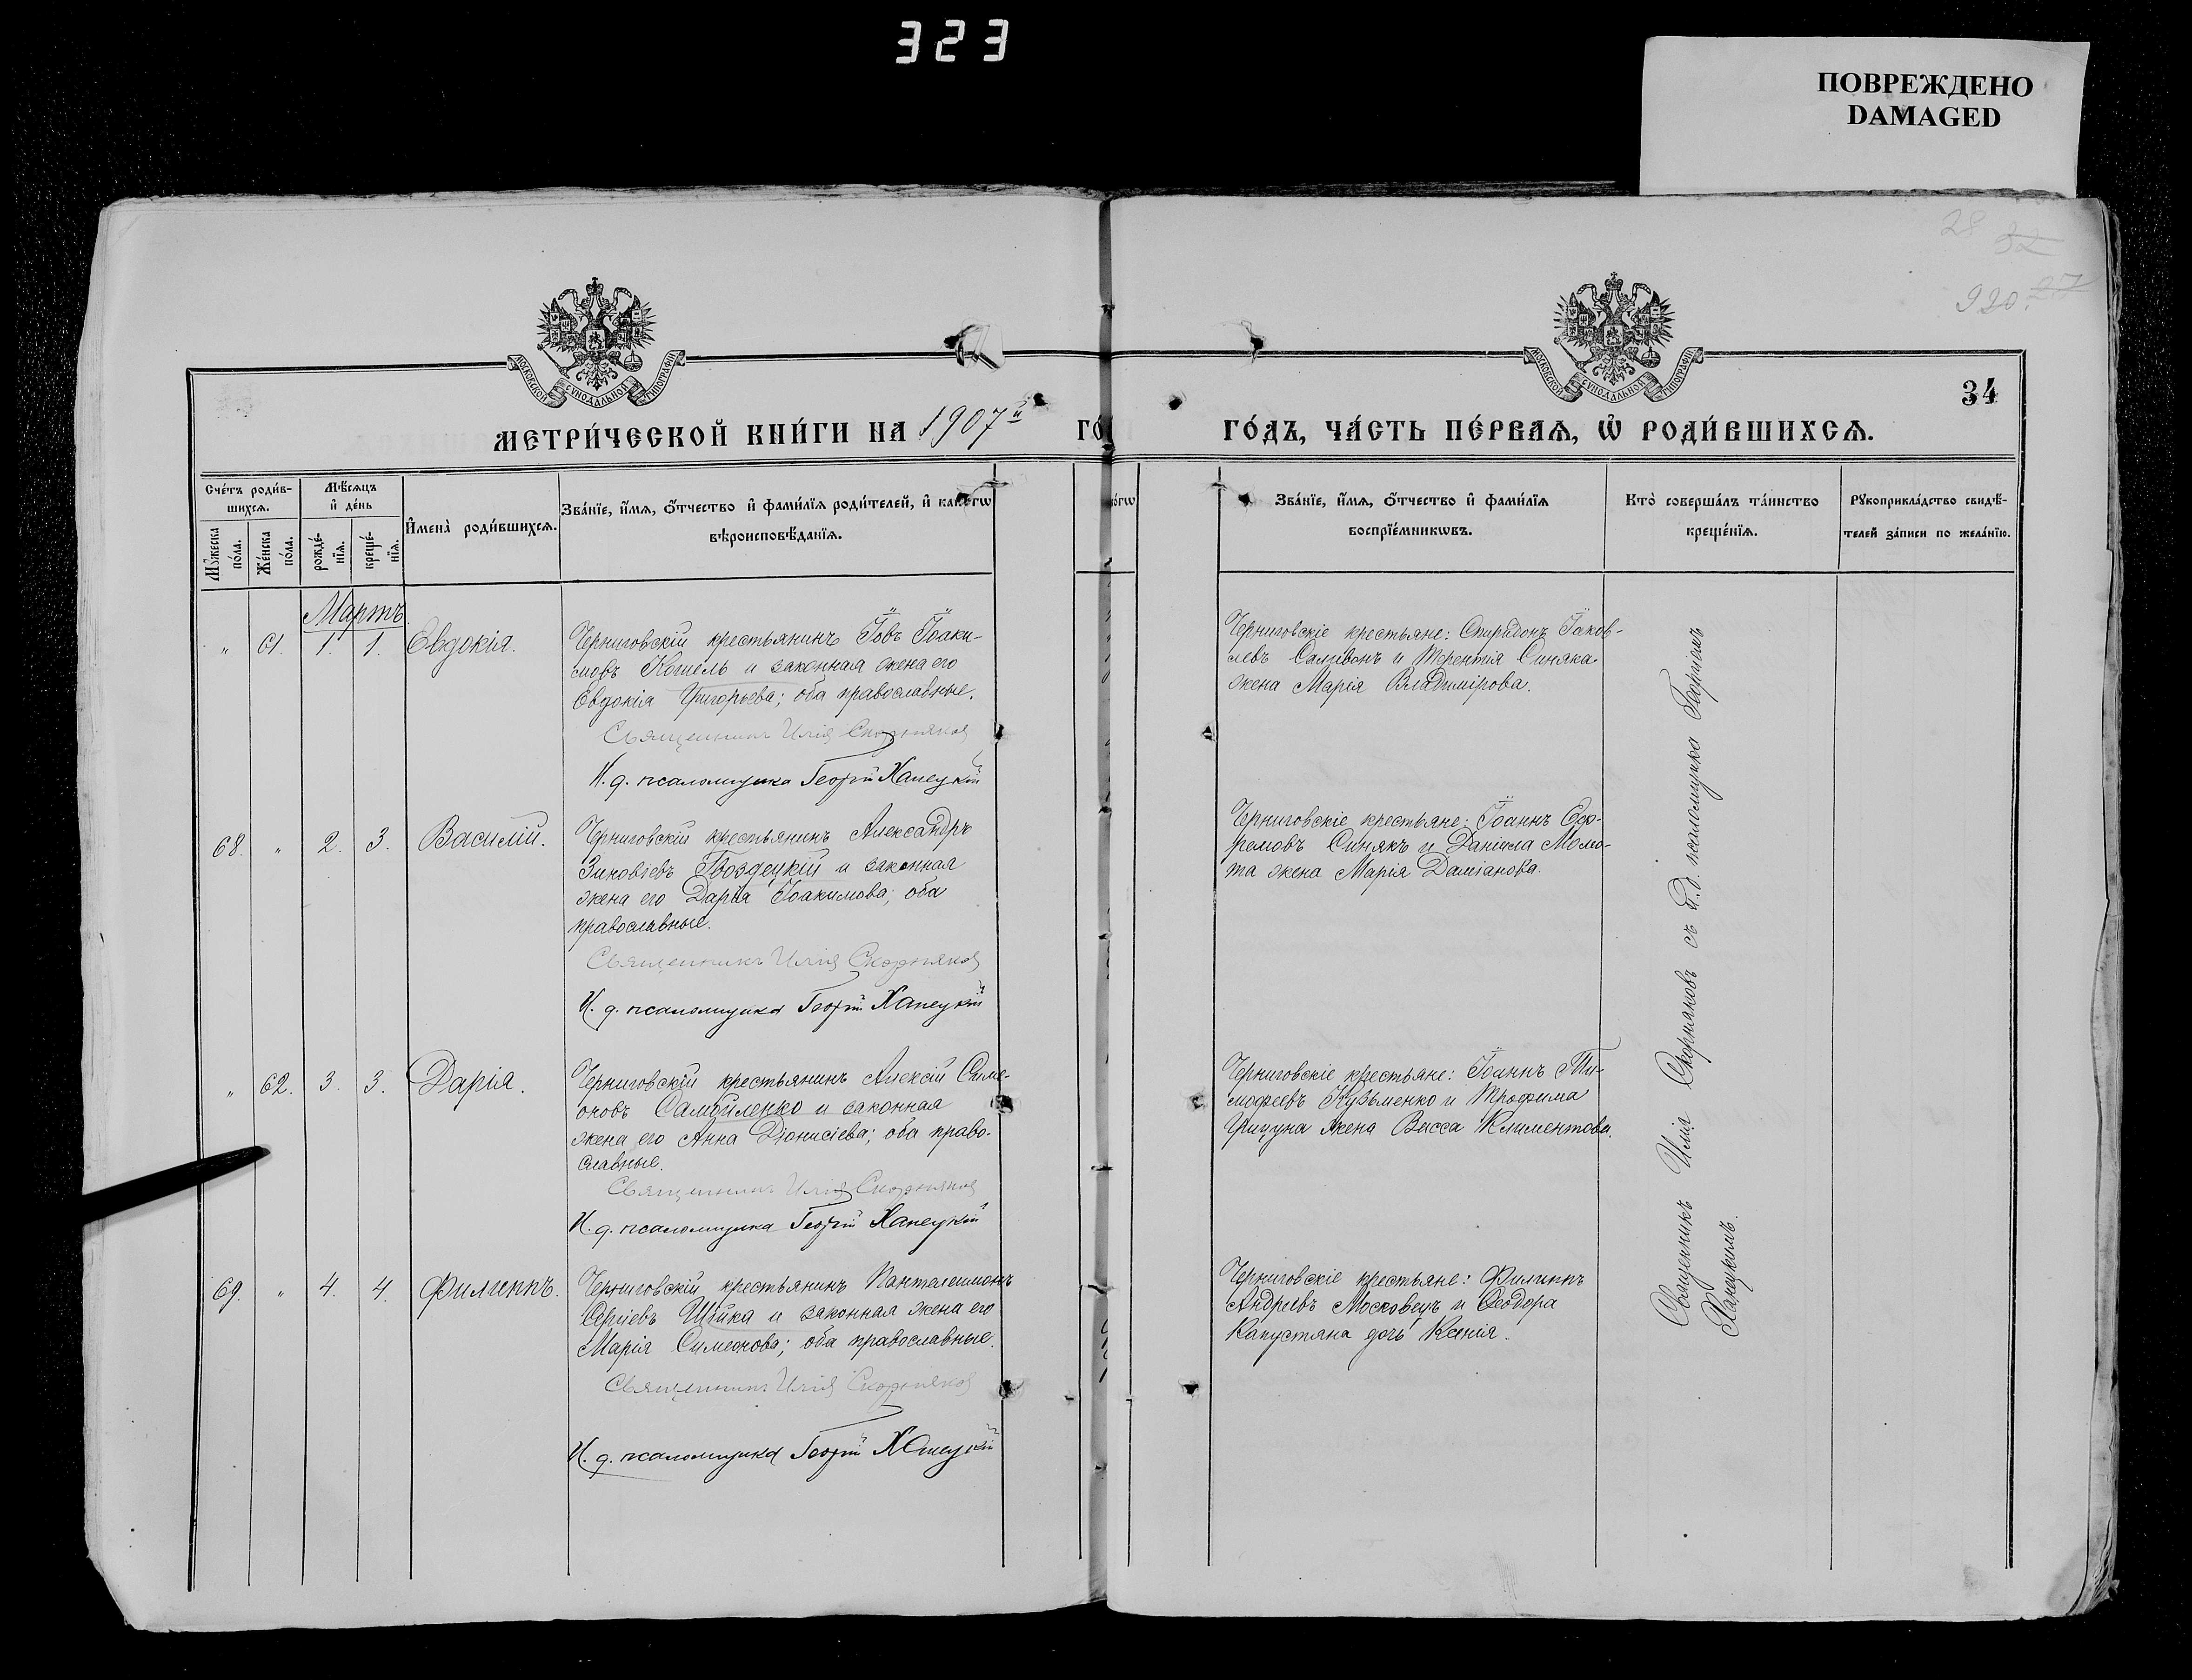 323
ПОВРЕЖДЕНО
DAMAGED
28 32
920. 27
МОСКОВСКОЙ СѴНОДАЛЬНОЙ ТИПОГРАФІИ
МОСКОВСКОЙ СѴНОДАЛЬНОЙ ТИПОГРАФІИ
34
МЕТРИ́ЧЕСКОЙ КНИ́ГИ НА 1907й ГО́
ГО́ДЪ, ЧА́СТЬ ПЕ́РВАѦ, Ѡ҆ РОДИ́ВШИХСѦ.
Сче́тъ роди́в-
шихсѧ.
Мꙋ́жеска по́ла.
Же́нска по́ла.
Мѣ́сѧцъ
и҆ де́нь
рожде́-
нїѧ.
креще́-
нїѧ.
И҆мена̀ роди́вшихсѧ.
Зва́нїе, и҆́мѧ, ѻ҆́тчество и҆ фами́лїѧ роди́телей, и҆ како́гѡ
вѣроисповѣ́данїѧ.
о́гѡ
Зва́нїе, и҆́мѧ, ѻ҆́тчество и҆ фами́лїѧ
воспрїе́мникѡвъ.
Кто̀ соверша́лъ та́инство
креще́нїѧ.
Рꙋкоприкла́дство свидѣ́-
телей за́писи по жела́нїю.
Мартъ
" 61. 1. 1. Евдокія.
Черниговскій крестьянинъ Іовъ Іоаки-
мовъ Кошель и законная жена его
Евдокія Григорьева; оба православные.
Священникъ Илія Скорняковъ
И. д. псаломщика Георгій Ханецкій
Черниговскіе крестьяне: Спиридонъ Іаков-
левъ Саливонъ и Терентія Синяка
жена Марія Владимірова.
68. " 2. 3. Василій.
Черниговскій крестьянинъ Александръ
Зиновіевъ Гвоздецкій и законная
жена его Дарія Іоакимова; оба
православные.
Священникъ Илія Скорняковъ
И. д. псаломщика Георгій Ханецкій
Черниговскіе крестьяне: Іоаннъ Еф-
ремовъ Синякъ и Даніила Момо-
та жена Марія Даміанова.
" 62. 3. 3. Дарія.
Черниговскій крестьянинъ Алексій Симе-
оновъ Самойленко и законная
жена его Анна Діонисіева; оба право-
славные.
Священникъ Илія Скорняковъ
И. д. псаломщика Георгій Ханецкій
Черниговскіе крестьяне: Іоаннъ Ти-
мофеевъ Кузьменко и Трофима
Грицуна жена Васса Климентова.
69. " 4. 4. Филиппъ.
Черниговскій крестьянинъ Пантелеимонъ
Сергіевъ Шійка и законная жена его
Марія Симеонова; оба православные.
Священникъ Илія Скорняковъ
И. д. псаломщика Георгій Ханецкій
Черниговскіе крестьяне: Филиппъ
Андреевъ Московецъ и Феодора
Капустяна дочь Ксенія.
Священникъ Илія Скорняковъ съ И. д. псаломщика Георгіемъ
Ханецкимъ.